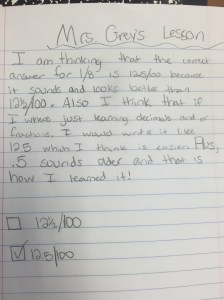 Mrs. Grey's Lesson
I am thinking that the correct
answer for 1/8 is 12.5/100 because
it sounds and looks better than
12½/100. Also I think that if
I where just learning decimals and or
fractions, I would write it like
12.5 which I think is easier. Plus,
.5 sounds older and that is
how I learned it!
12½/100
12.5/100